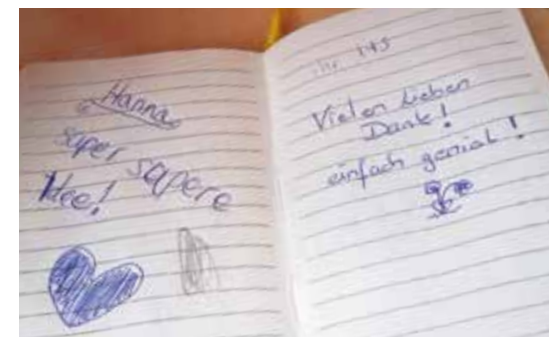 Hanna
super sapere
Idee!
Ihr 145
Vielen lieben
Dank!
einfach genial!